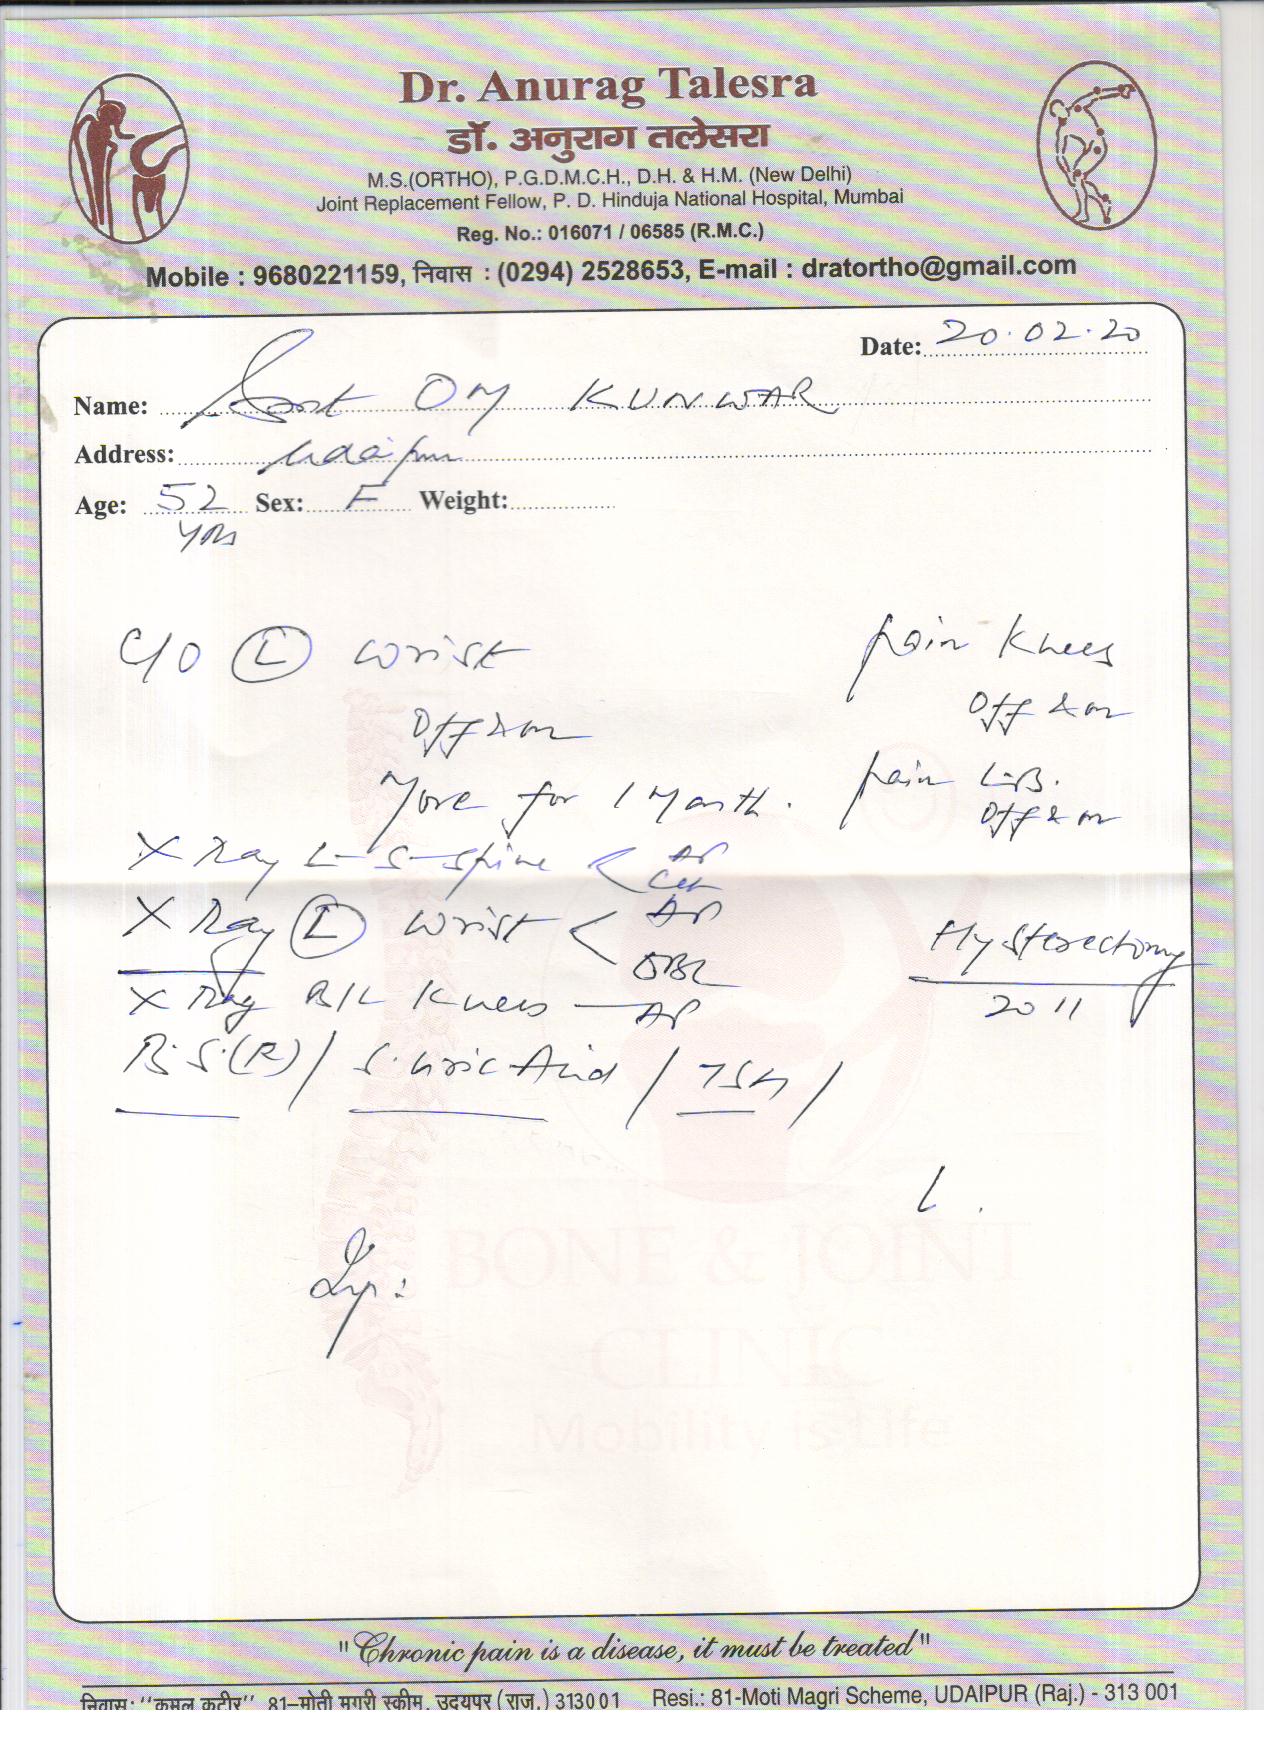 Dr. Anurag Talesra
डॉ. अनुराग तलेसरा
M.S.(ORTHO), P.G.D.M.C.H., D.H. & H.M. (New Delhi)
Joint Replacement Fellow, P. D. Hinduja National Hospital, Mumbai
Reg. No.: 016071 / 06585 (R.M.C.)
Mobile : 9680221159, निवास : (0294) 2528653, E-mail : dratortho@gmail.com
Date: 20.02.20
Name: Smt OM KUNWAR
Address: Udaipur
Age: 52 Sex: F Weight:
yrs
C/O (L) wrist
Off & on
More for 1 Month.
pain Knees
Off & on
pain L.B.
Off & on
X Ray L-S-Spine < AP
X Ray (L) wrist < AP
OBL
X Ray B/L Knees — AP
Hysterectomy
2011
B.S.(R) / S. Uric Acid / TSH /
L .
Imp:
BONE & JOINT
CLINIC
Mobility is Life
"Chronic pain is a disease, it must be treated"
निवास: "कमल कुटीर" 81–मोती मगरी स्कीम, उदयपुर (राज.) 313001 Resi.: 81-Moti Magri Scheme, UDAIPUR (Raj.) - 313 001